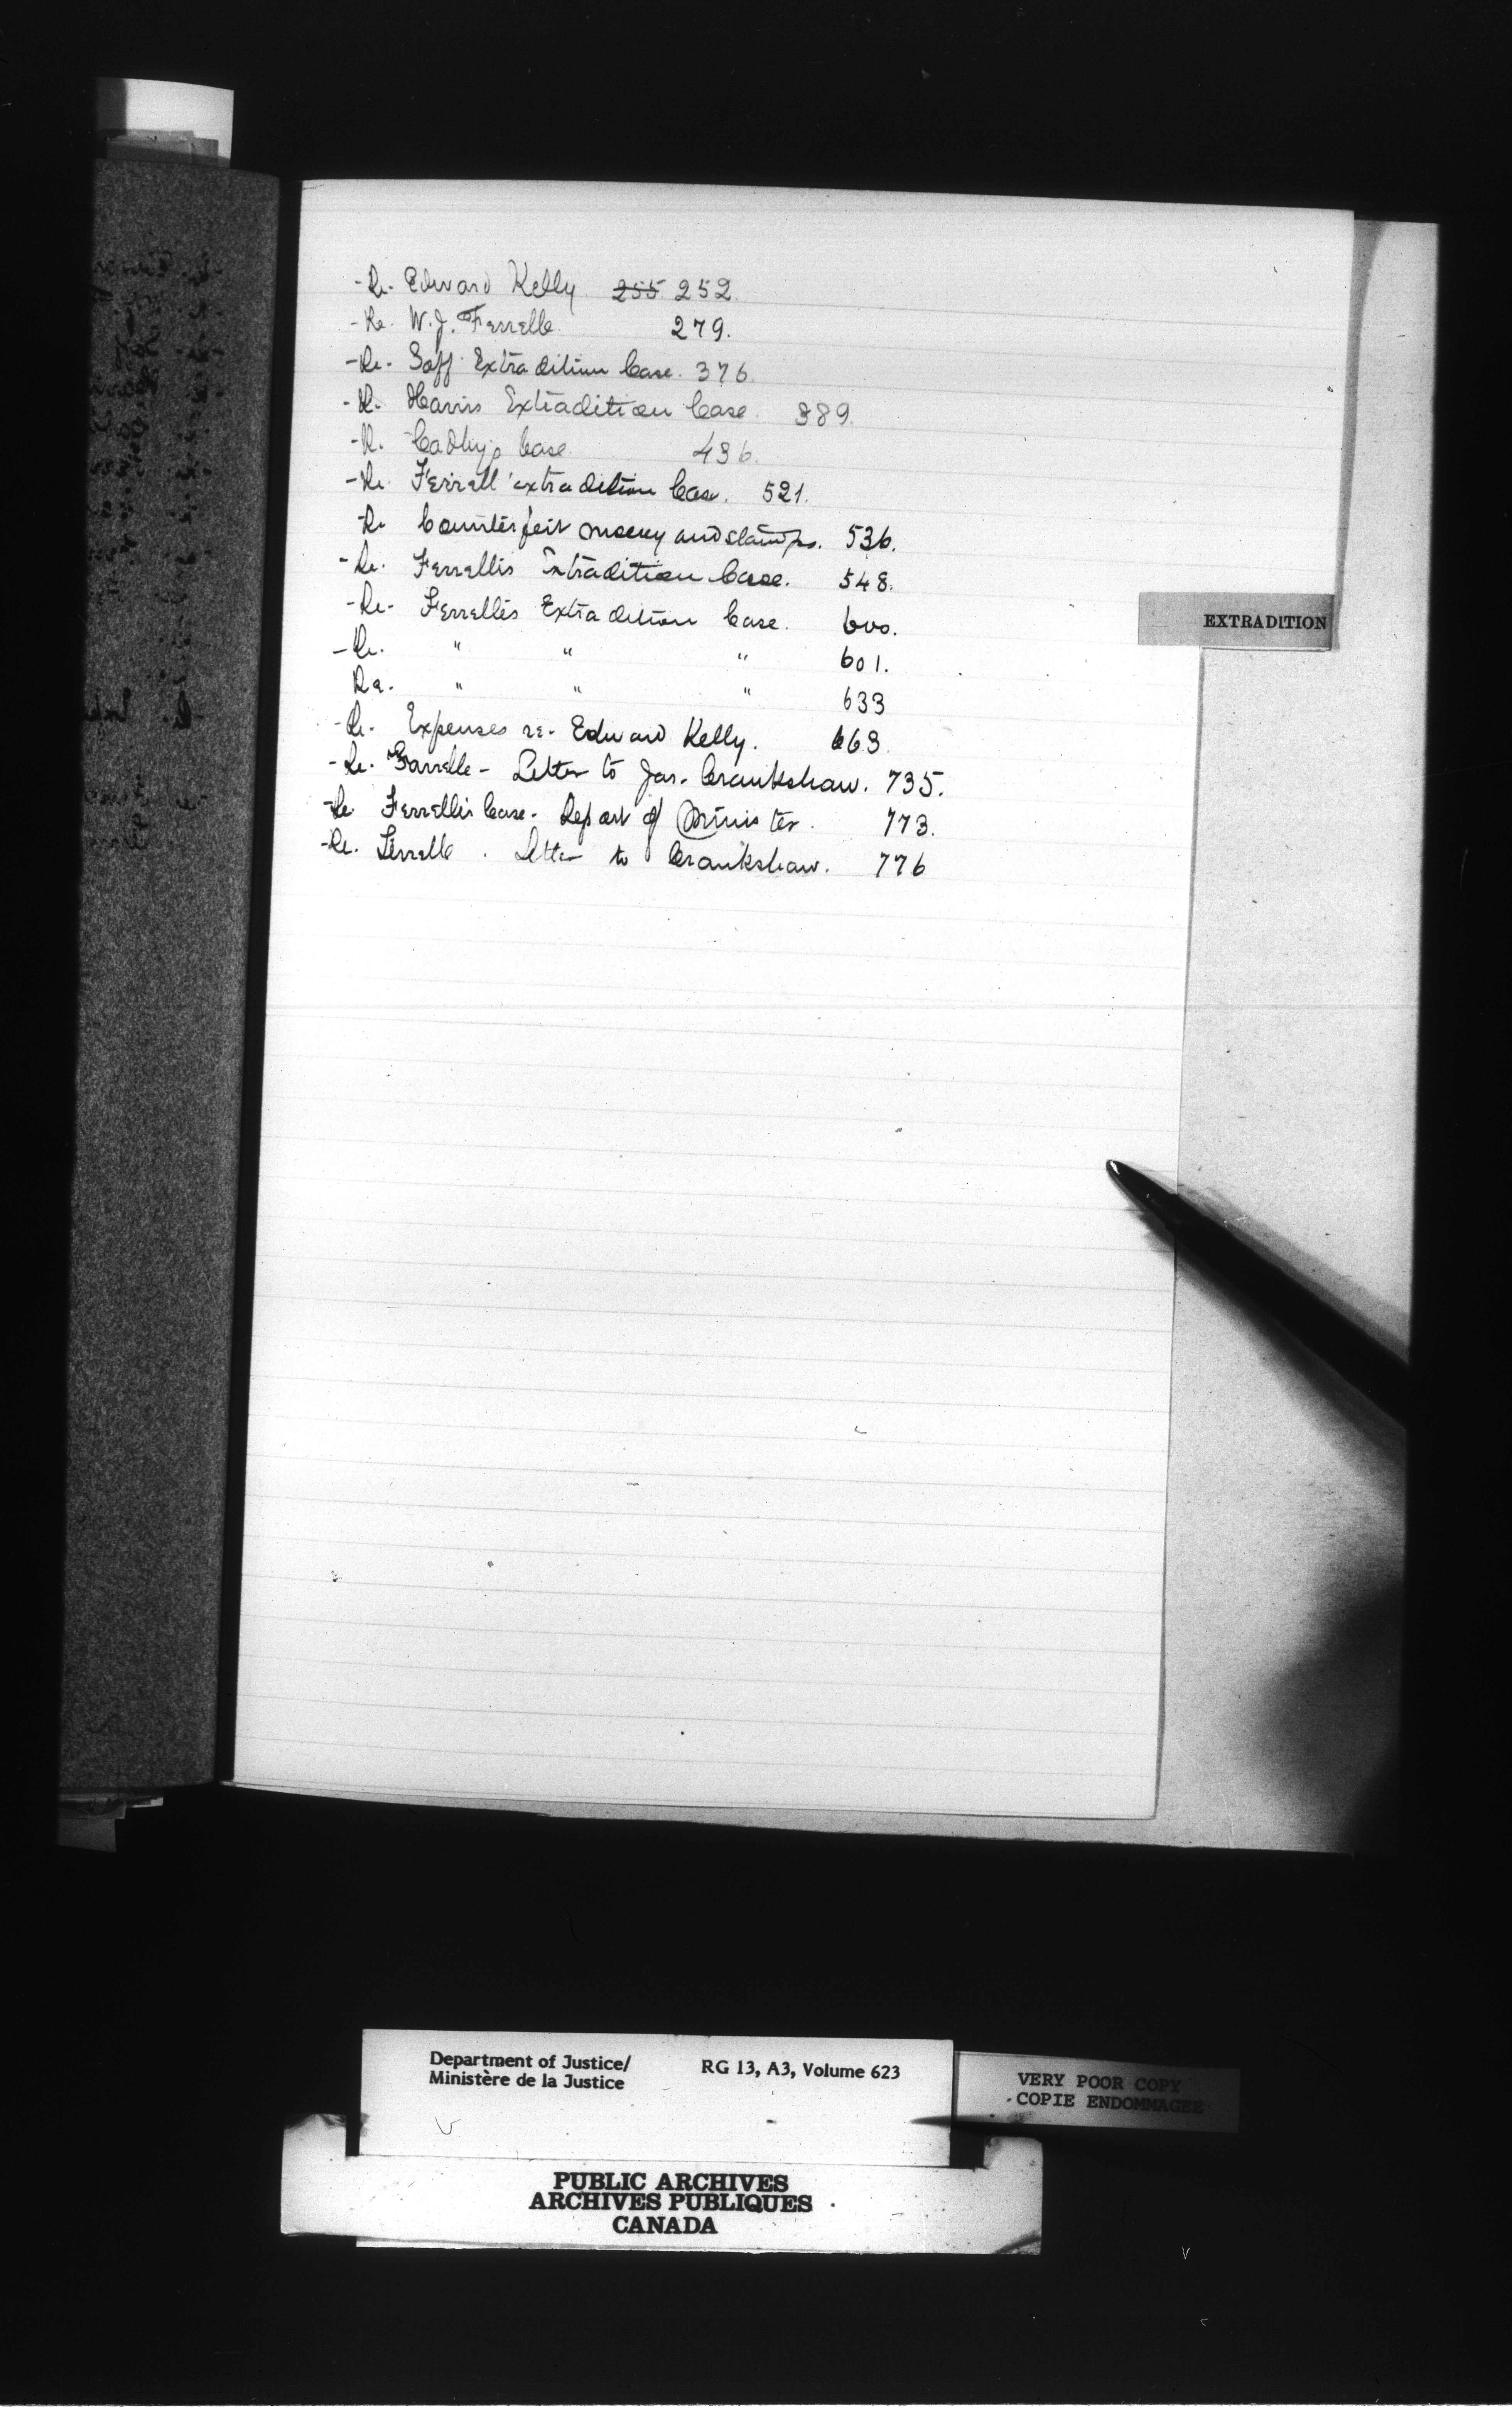 - Re. Edward Kelly 255 252.
- Re. W.J. Ferrelle 279.
- Re. Goff Extradition Case. 376.
- R. Harris Extradition Case. 389.
- R. Cadby's Case. 436.
- Re. Ferrell extradition Case. 521.
Re Counterfeit money and stamps. 536.
- Re. Ferrelle's Extradition Case. 548.
- Re. Ferrelle's Extradition Case. 600.
- Re. " " " 601.
Re. " " " 633
- Re. Expenses re. Edward Kelly. 663.
- Re. Farrelle - Letter to Jas. Crankshaw. 735.
- Re Ferrelle's Case. Report of Minister. 773.
- Re. Ferrelle. Letter to Crankshaw. 776
EXTRADITION
Department of Justice/
Ministère de la Justice
RG 13, A3, Volume 623
VERY POOR COPY
COPIE ENDOMMAGEE
PUBLIC ARCHIVES
ARCHIVES PUBLIQUES
CANADA